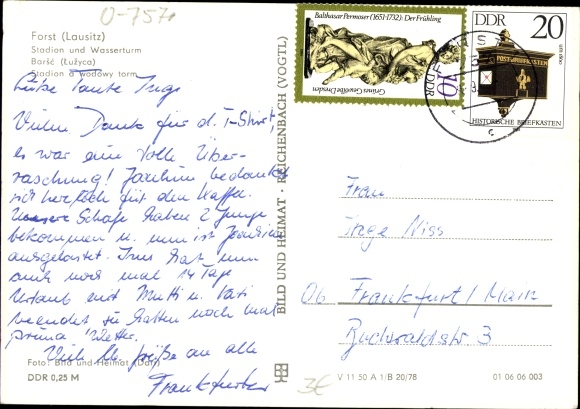 0-7571
Forst (Lausitz)
Stadion und Wasserturm
Baršć (Łužyca)
Stadion a wodowy torm
Liebe Tante Inge
Vielen Dank für d. T-Shirt,
es war eine volle Über-
raschung! Joachim bedankt
sich herzlich für den Kaffee.
Unsere Schafe haben 2 Junge
bekommen u. nun ist Joachim
ausgelastet. Nun
auch noch mal 14 Tage
Urlaub mit Mutti u. Vati
beendet sie hatten noch mal
prima Wetter.
Viele Grüße an alle
Frankfurter
Foto: Bild und Heimat (Darr)
DDR 0,25 M
BILD UND HEIMAT · REICHENBACH (VOGTL)
Balthasar Permoser (1651-1732): Der Frühling
Grünes Gewölbe Dresden
DDR 10
DDR 20
POSTBRIEFKASTEN
um 1900
HISTORISCHE BRIEFKASTEN
c
Frau
Inge Niss
Frankfurt/Main
3
3€
V 11 50 A 1/B 20/78
01 06 06 003